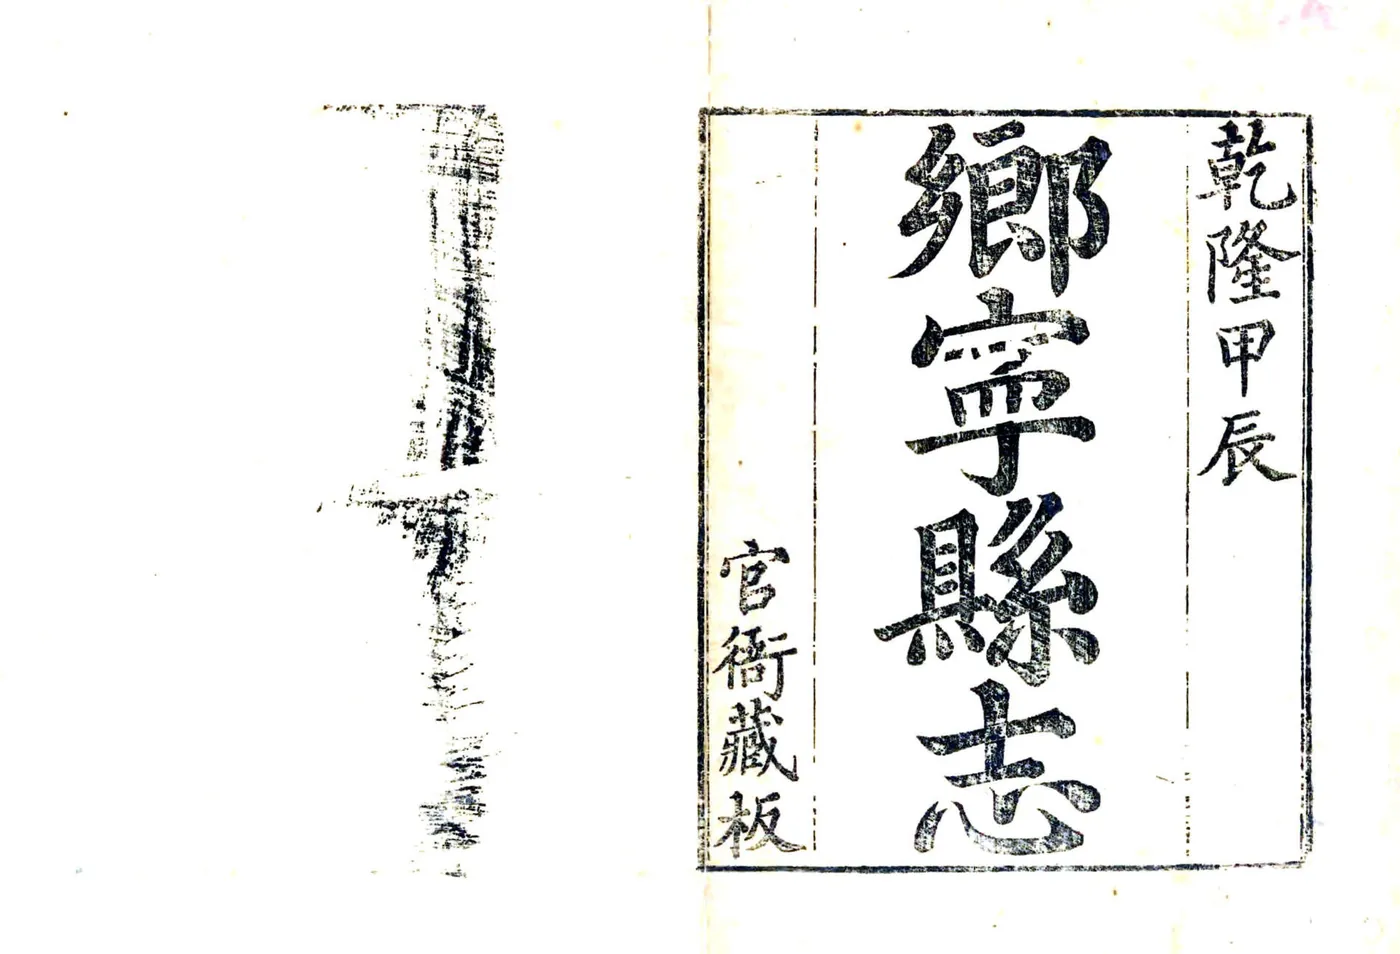 乾隆甲辰
鄉寧縣志
官衙藏板